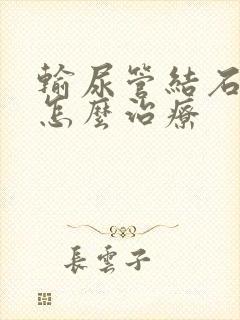 輸尿管結石
怎麼治療
長雲子